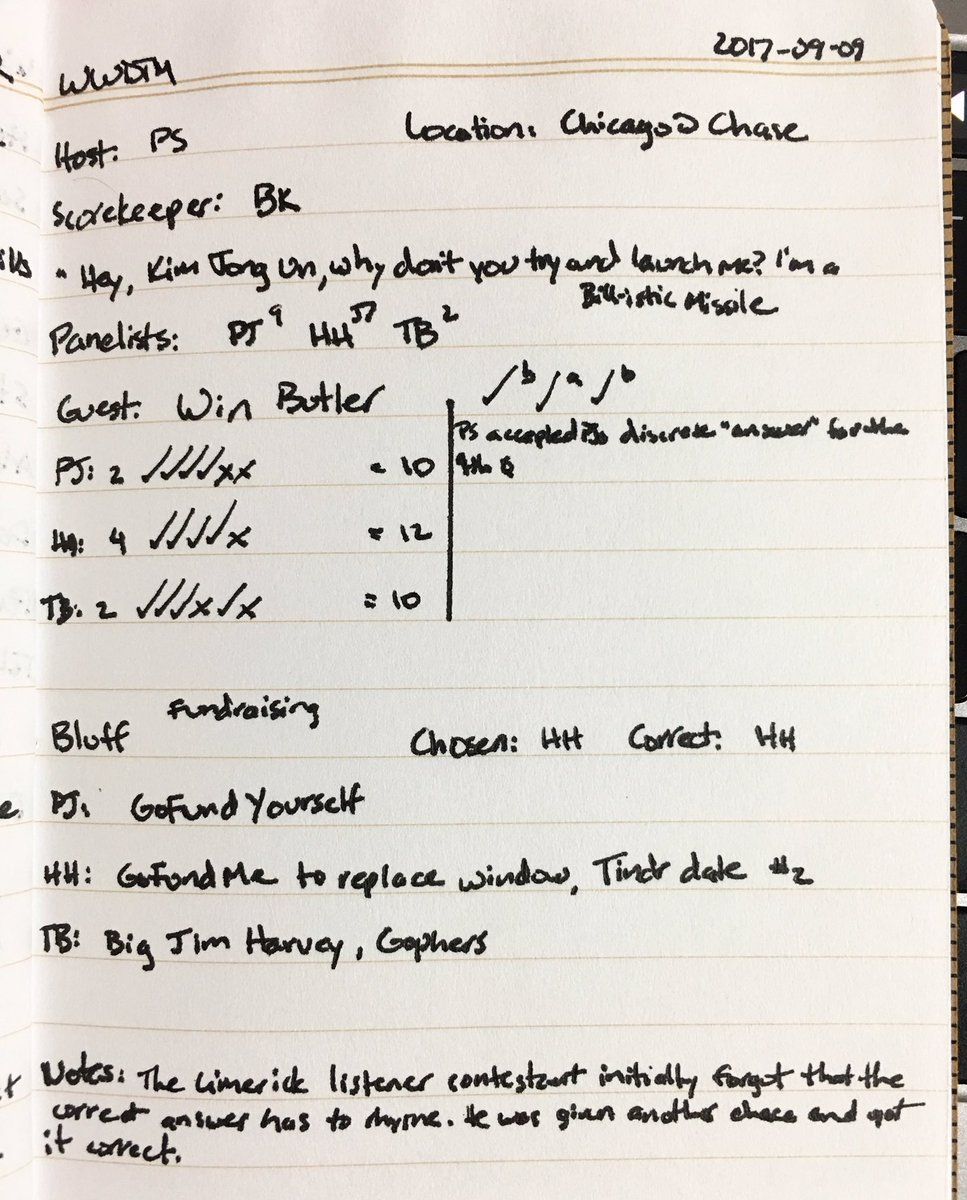 2017-09-09
WWDTM
Host: PS Location: Chicago Chase
Scorekeeper: BK
"Hey, Kim Jong Un, why don't you try and launch me? I'm a
Bill-istic Missile
Panelists: PJ 9 HH TB 2
Guest: Win Butler ✓b ✓a ✓b
PS accepted discrete "answer" for the
PJ: 2 ✓✓✓✓xx = 10
HH: 4 ✓✓✓✓x = 12
TB: 2 ✓✓✓x✓x = 10
Fundraising
Bluff Chosen: HH Correct: HH
PJ: GoFund Yourself
HH: GoFundMe to replace window, Tindr date #2
TB: Big Jim Harvey, Gophers
Notes: The Limerick listener contestant initially forgot that the
correct answer has to rhyme. He was given another chace and got
it correct.